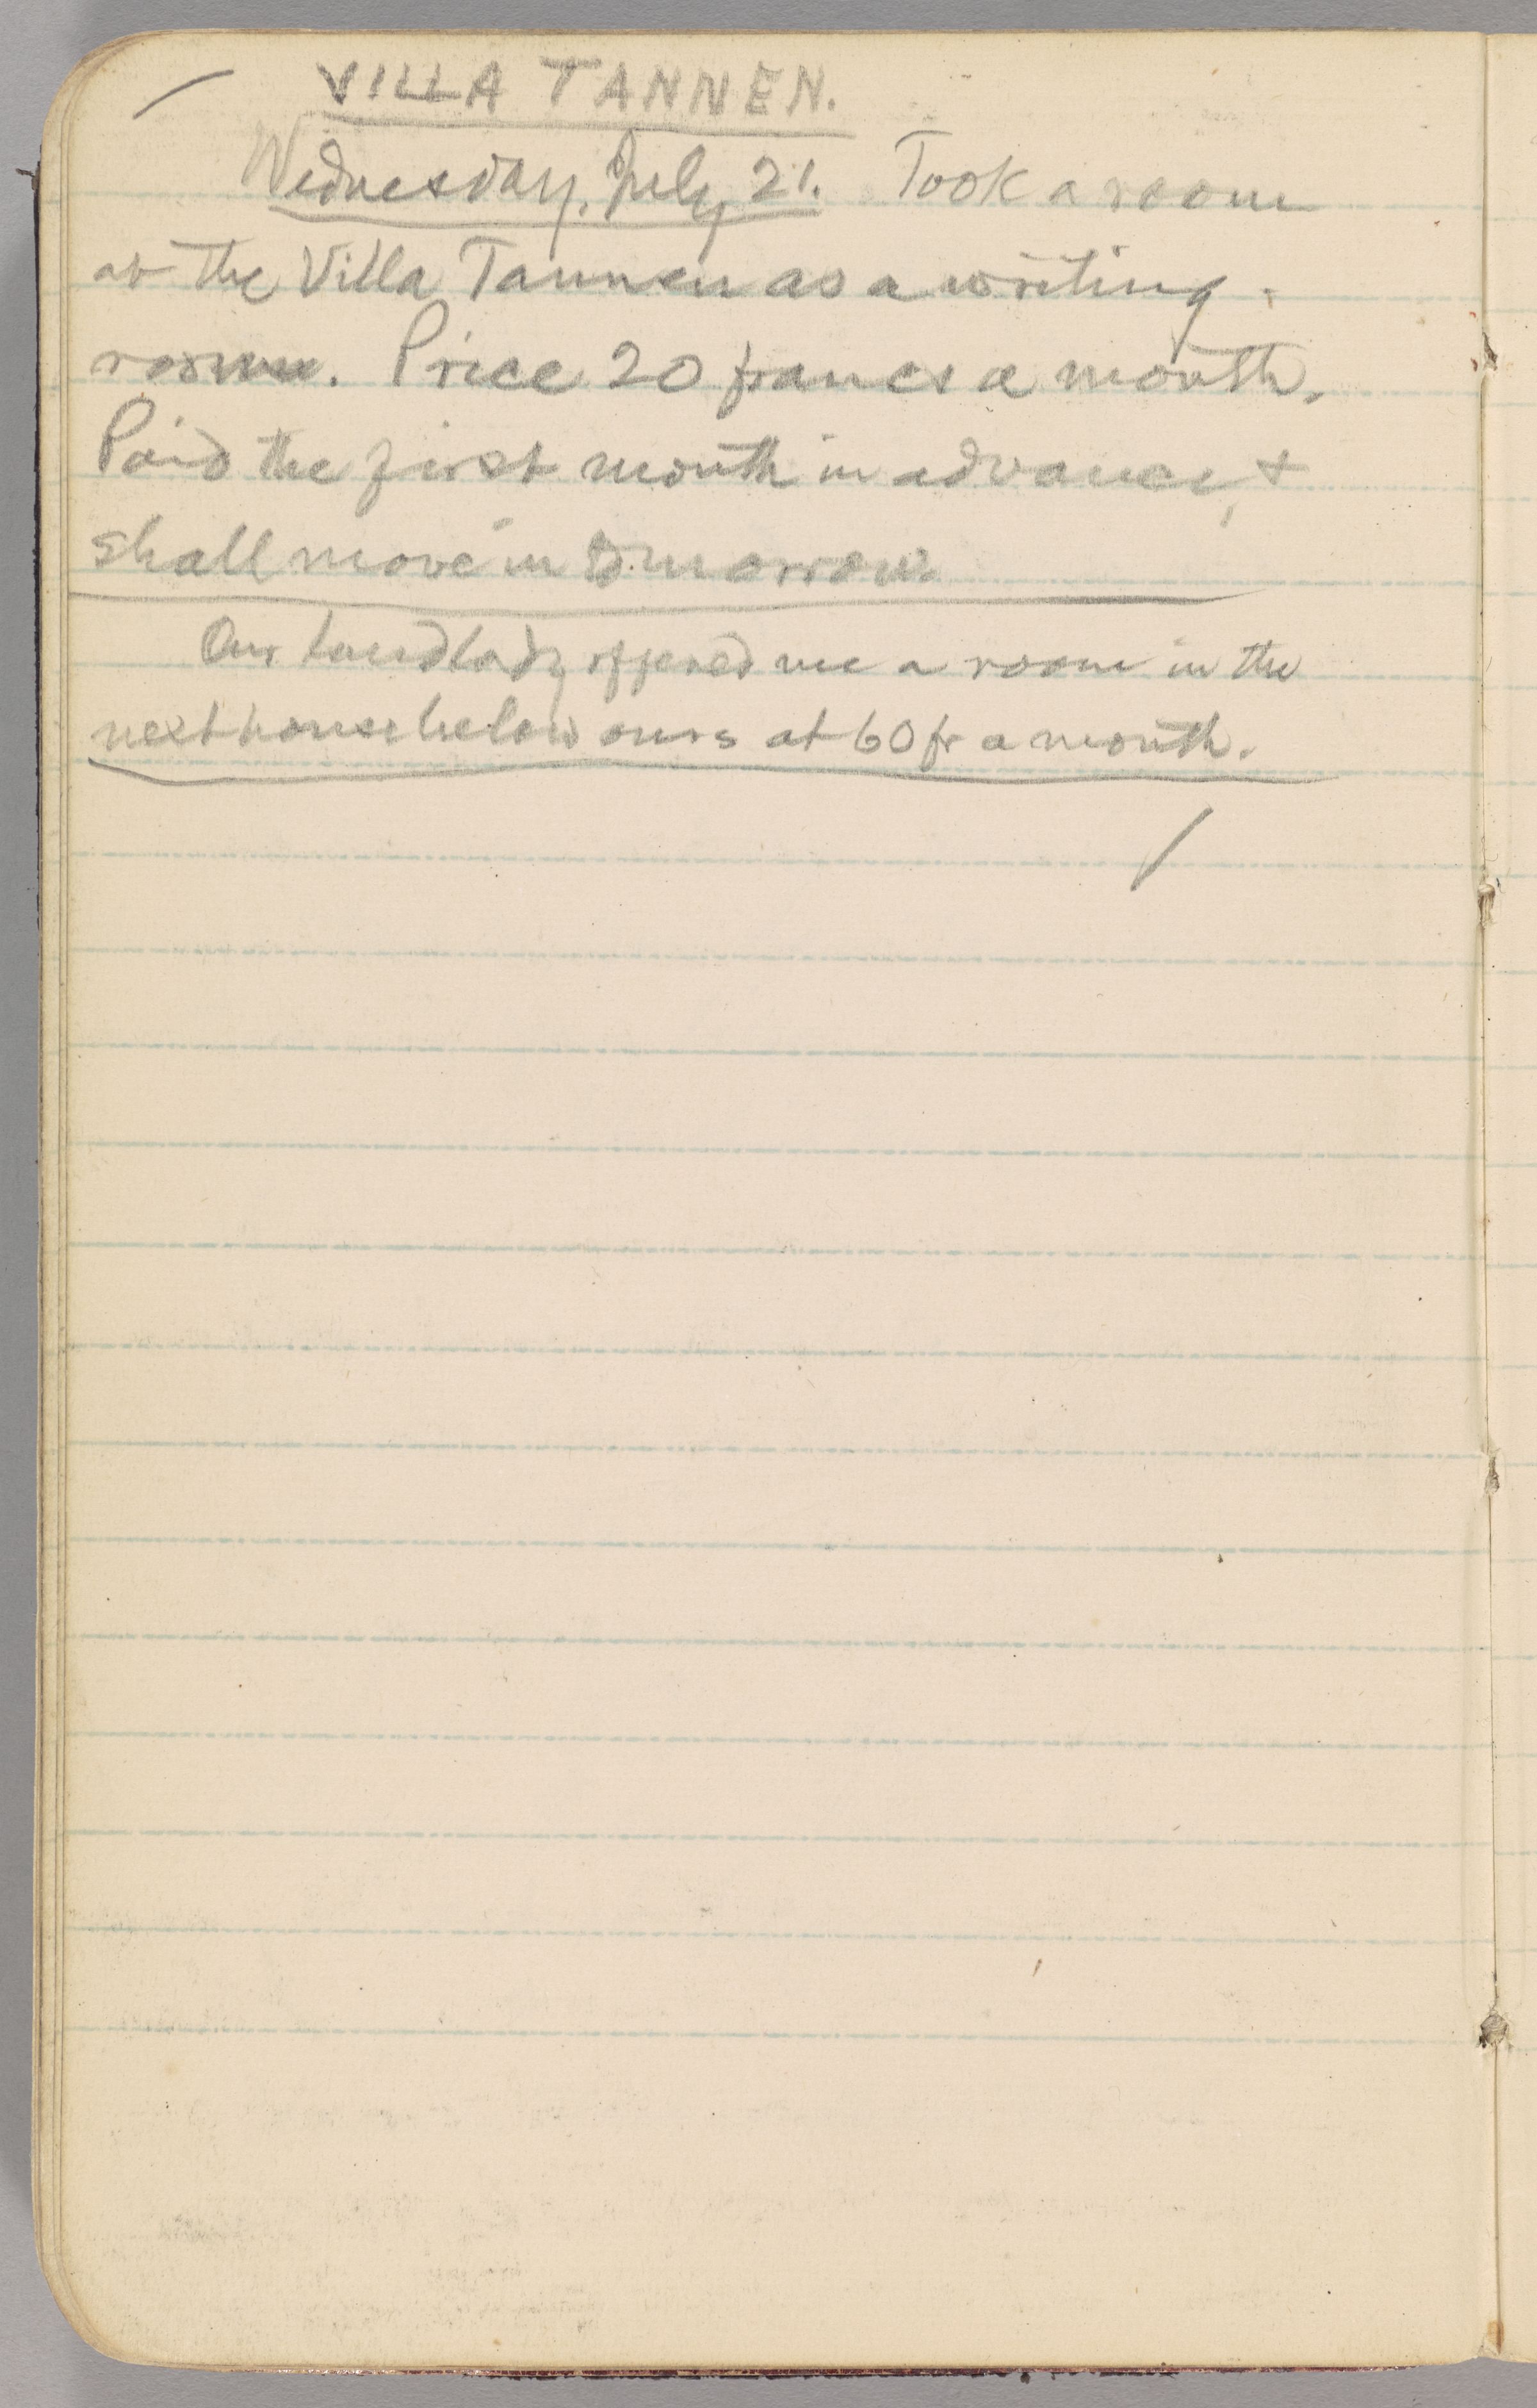 VILLA TANNEN.
Wednesday, July 21. Took a room
at the Villa Tannen as a writing-
room. Price 20 francs a month.
Paid the first month in advance, &
shall move in to-morrow.
Our landlady offered me a room in the
next house below ours at 60 fr a month.